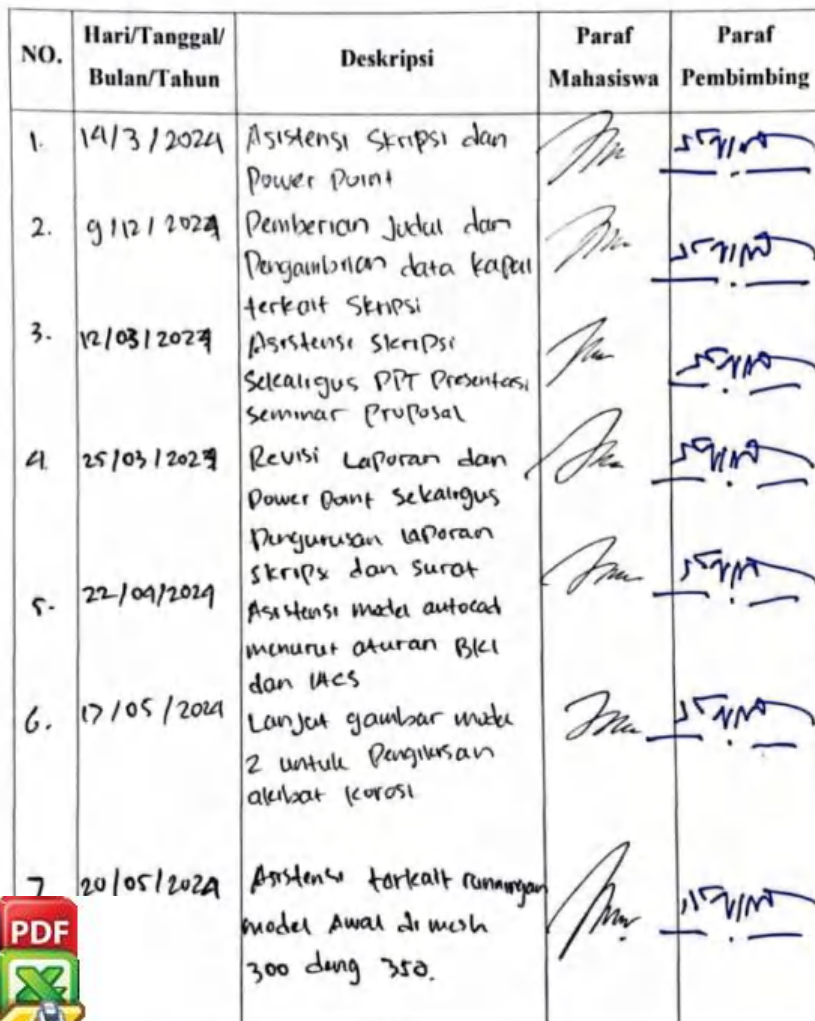 NO. Hari/Tanggal/ Bulan/Tahun Deskripsi Paraf Mahasiswa Paraf Pembimbing
1. 14/3/2024 Asistensi Skripsi dan
Power Point
2. 9/12/2024 Pemberian Judul dan
Pengambilan data kapal
terkait Skripsi
3. 12/03/2024 Asistensi Skripsi
Sekaligus PPT Presentasi
Seminar Proposal
4. 25/03/2024 Revisi Laporan dan
Power Point Sekaligus
Pengurusan laporan
Skripsi dan Surat
5. 22/04/2024 Asistensi model autocad
menurut aturan BKI
dan IACS
6. 17/05/2024 Lanjut gambar model
2 untuk Pengikisan
akibat korosi
7 20/05/2024 Asistensi terkait runningan
model Awal di mesh
300 deng 350.
PDF